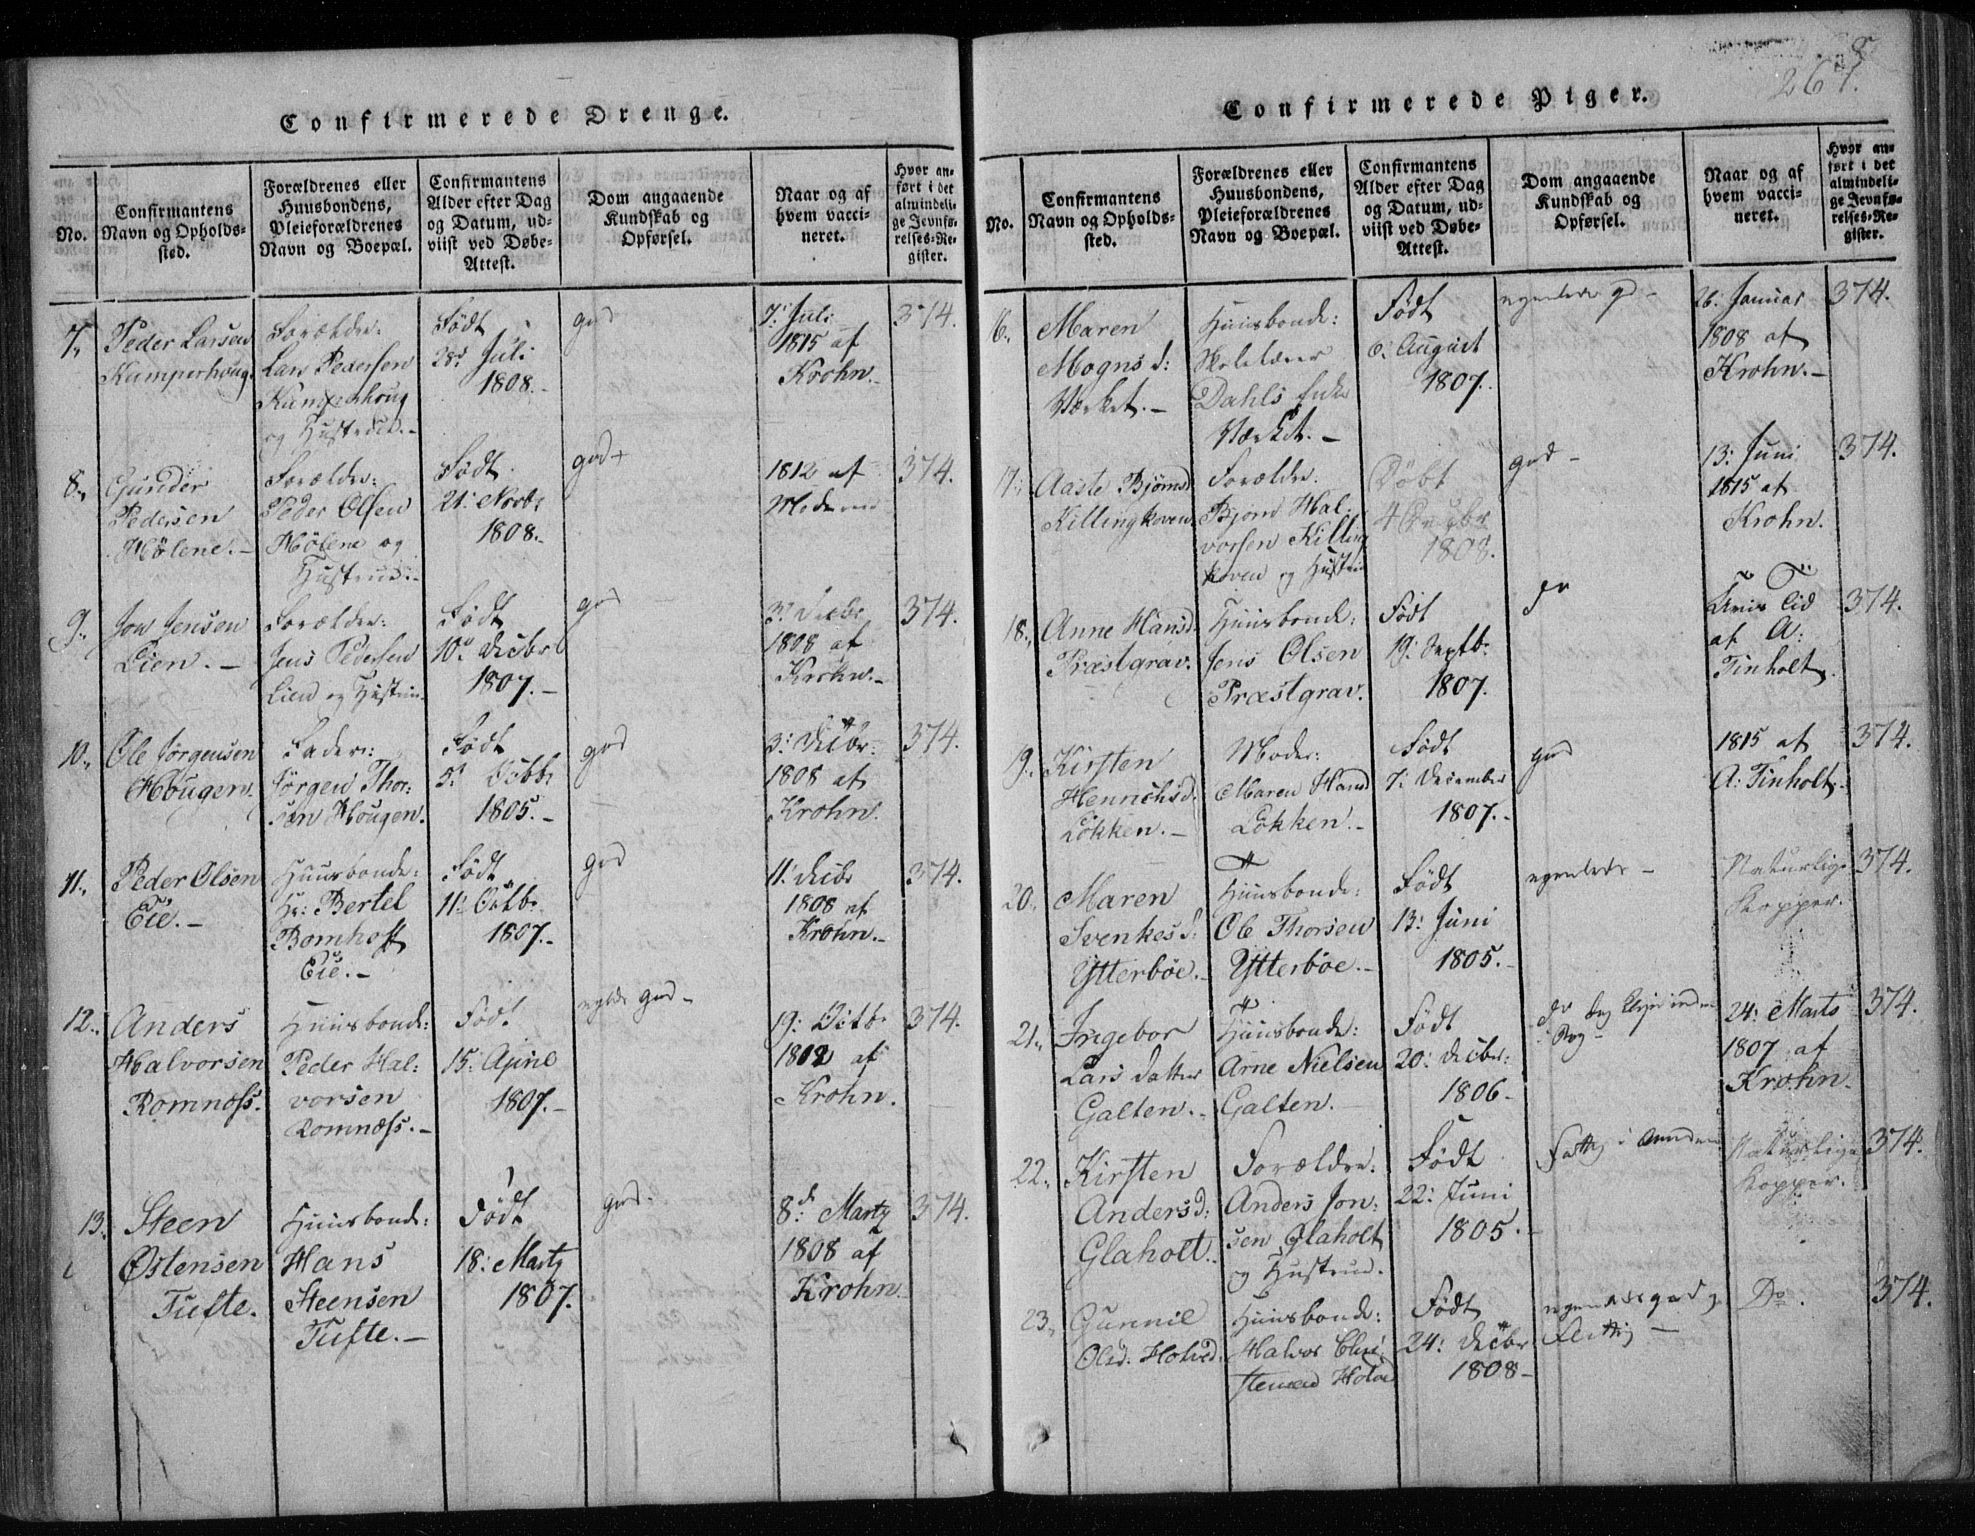 Confirmerede Drenge.
No.
Confirmantens
Navn og Opholds-
sted.
Forældrenes eller
Huusbondens,
Pleieforældrenes
Navn og Boepæl.
Confirmantens
Alder efter Dag
og Datum, ud-
viist ved Døbe-
Attest.
Dom angaaende
Kundskab og
Opførsel.
Naar og af
hvem vacci-
neret.
Hvor an-
ført i det
almindeli-
ge Jevnfø-
relses-Re-
gister.
7.
Peder Larsen
Kumperhoug.
Forældre:
Lars Pedersen
Kumperhoug
og Hustrue.-
Født
28d Juli
1808.-
god
7: Juli
1815 af
Krohn.-
374.
8.
Gunder
Pedersen
Hölene.-
Forældre:
Peder Olsen
Hölene og
Hustrue.-
Født
21: Novbr
1808.-
god
1812 af
Moderen
374.
9.
Jon Jensen
Lien.-
Forældre:
Jens Pedersen
Lien og Hustrue
Født
10: Decbr
1807.-
god
3: Decbr
1808 af
Krohn.-
374.
10.
Ole Jörgensen
Hougen.
Fader:
Jörgen Thor-
sen Hougen.
Født
5: Octbr
1805.-
god
3: Decbr:
1808 af
Krohn.
374.
11.
Peder Olsen
Eie.-
Huusbonde:
Hr: Bertel
Bomhoff
Eie.-
Født
11: Octbr
1807.-
god
11: Decbr
1808 af
Krohn.-
374.
12.
Anders
Halvorsen
Romnoss.
Huusbonde:
Peder Hal-
vorsen
Romnæss.-
Født
15: April
1807.-
god-
19: Octb.
1812 af
Krohn.
374.
13.
Steen
Østensen
Tufte.
Huusbonde:
Hans
Steensen
Tufte.-
Født
18: Marty
1807.
god.
8d: Marty
1808 af
Krohn.
374.
267.
8
Confirmerede Piger.
No.
Confirmantens
Navn og Opholds-
sted.
Forældrenes eller
Huusbondens,
Pleieforældrenes
Navn og Boepæl.
Confirmantens
Alder efter Dag
og Datum, ud-
viist ved Døbe-
Attest.
Dom angaaende
Kundskab og
Opførsel.
Naar og af
hvem vacci-
neret.
Hvor an-
ført i det
almindeli-
ge Jevnfø-
relses-Re-
gister.
16.
Maren
Mogns d:
Værket.-
Huusbonde:
Skolelærer
Dahls Enke
Værket.-
Født
6: August
1807.
26: Januar
1808 af
Krohn.-
374.
17.
Aaste Bjørnsd
Killingkoven.
Forældre.
Bjorn Hal-
vorsen Killing
koven og Hustrue
Døbt
1808.
god-
13: Juni
1815 af
Krohn.
374.
18.
Anne Hansd.
Præstgrav.
Huusbonde:
Jens Olsen
Præstgrav.
Født
19: Septb.
1807.
do
Tid
af A:
Tinholt.
374.
19.
Kirsten
Henrichsd.
Lökken.-
Moder:
Maren Hansd
Lökken.-
Født
7: December
1807.-
god
1815 af
A: Tinholt.
374.
20.
Maren
Svenkesd:
Ytterböe.
Huusbonde:
Ole Thorsen
Ytterböe.-
Født
13: Juni
1805.-
Naturlige
Kopper.
374.
21.
Ingebor
Lars datter
Galten.-
Huusbonde:
Arne Nielsen
Galten.
Født
20: Decbr:
1806-
24: Marts
1807 af
Krohn.
374.
22.
Kirsten
Andersd:
Glaholt.
Forældre:
Anders Jon-
sen Glaholt
og Hustrue.
Født
22: Juni
1805.-
Naturlige
Kopper.
374.
23.
Gunnil
Olsd: Holtved.
Huusbonde:
Halvor Chri-
stensen
Født
24: Decbr
1808-
Flittig-
Do.
374.